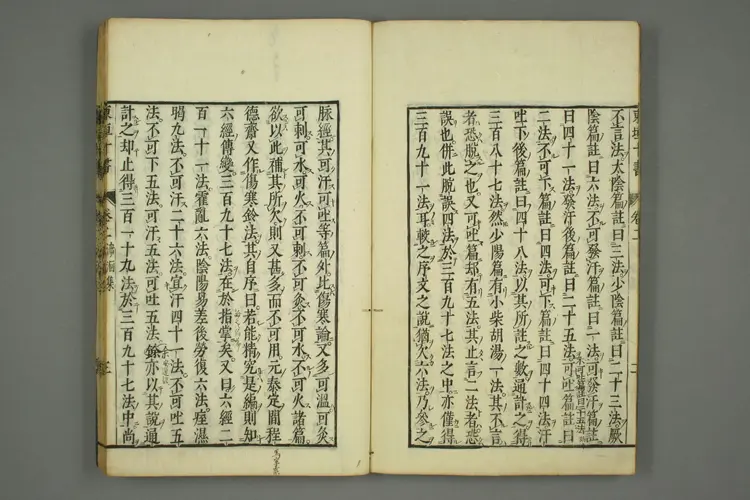 不言法太陰篇註曰三法少陰篇註曰二十三法厥
陰篇註曰六法不可發汗篇註曰一法可發汗篇註
曰四十一法發汗後篇註曰二十五法可吐篇註曰
二法不可下篇註曰四法可下篇註曰四十四法汗
吐下後篇註曰四十八法以其所註之數通計之得
三百八十七法然少陽篇有小柴胡湯一法其不言
者恐脫之也又可吐篇却有五法其止言二法者恐
誤也併此脫誤四法於三百九十七法之中亦僅得
三百九十一法耳較之序文之說猶欠六法乃參之
脉經其可汗可吐等篇外此傷寒論又多可溫可灸
可刺可水可火不可刺不可灸不可水不可火諸篇
欲以此補其所欠則又甚多而不可用元泰定間程
德齋又作傷寒鈐法其自序曰若能精究是編則知
六經傳變三百九十七法在於指掌矣又曰六經二
百一十一法霍亂六法陰陽易差後勞復六法痓濕
暍九法不可汗二十六法宜汗四十一法不可吐五
法不可下五法可汗五法可吐五法餘亦以其說通
計之却止得三百一十九法於三百九十七法中尚